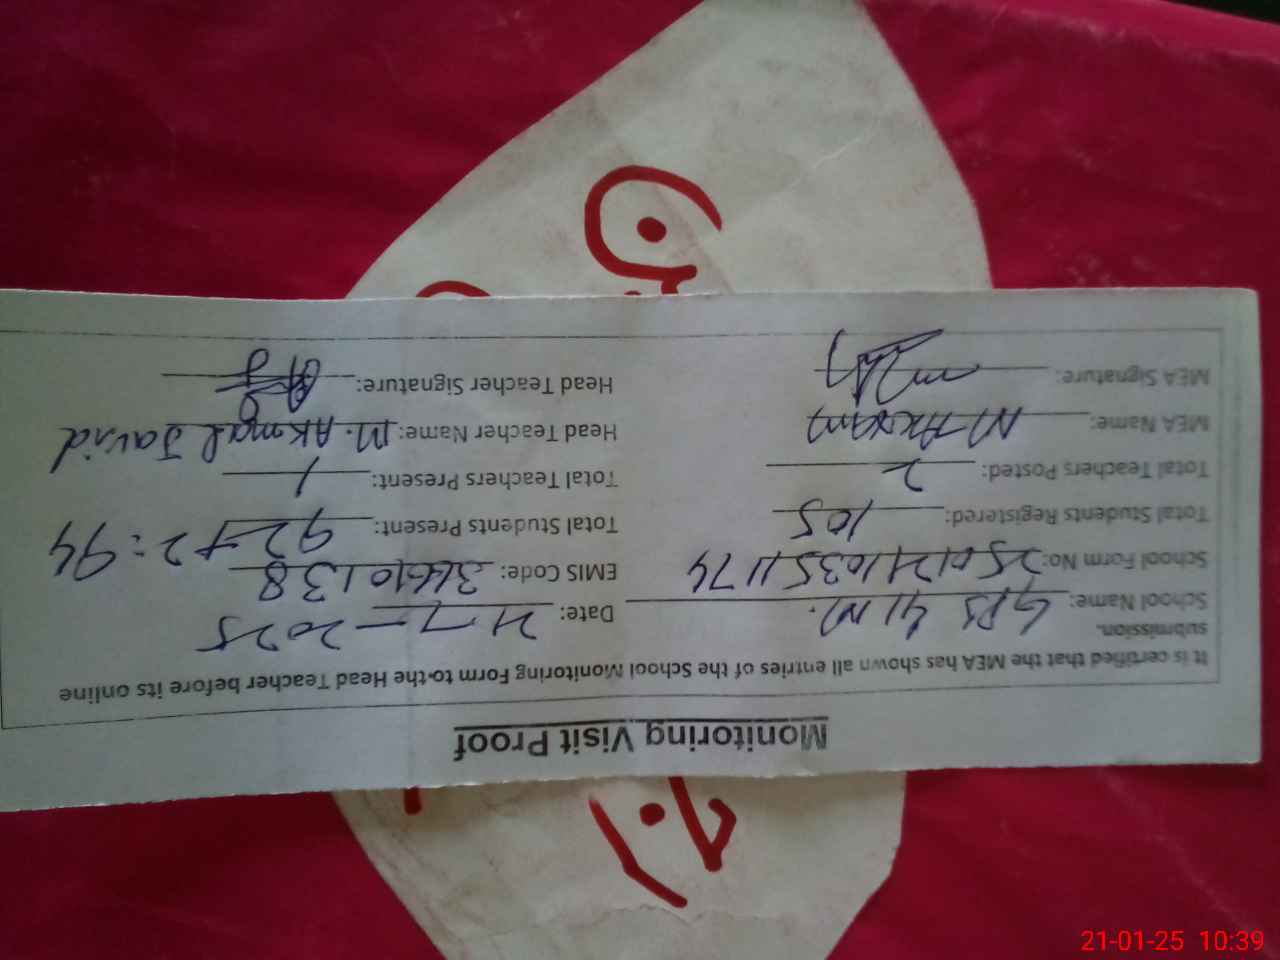 Monitoring Visit Proof
It is certified that the MEA has shown all entries of the School Monitoring Form to the Head Teacher before its online
submission.
School Name: GPS 41 M. Date: 21-1-2025
School Form No: 250121103511174 EMIS Code: 36610138
Total Students Registered: 105 Total Students Present: 92+2=94
Total Teachers Posted: 2 Total Teachers Present: 1
MEA Name: M. Akram Head Teacher Name: M. Akmal Javid
MEA Signature: Head Teacher Signature:
21-01-25 10:39